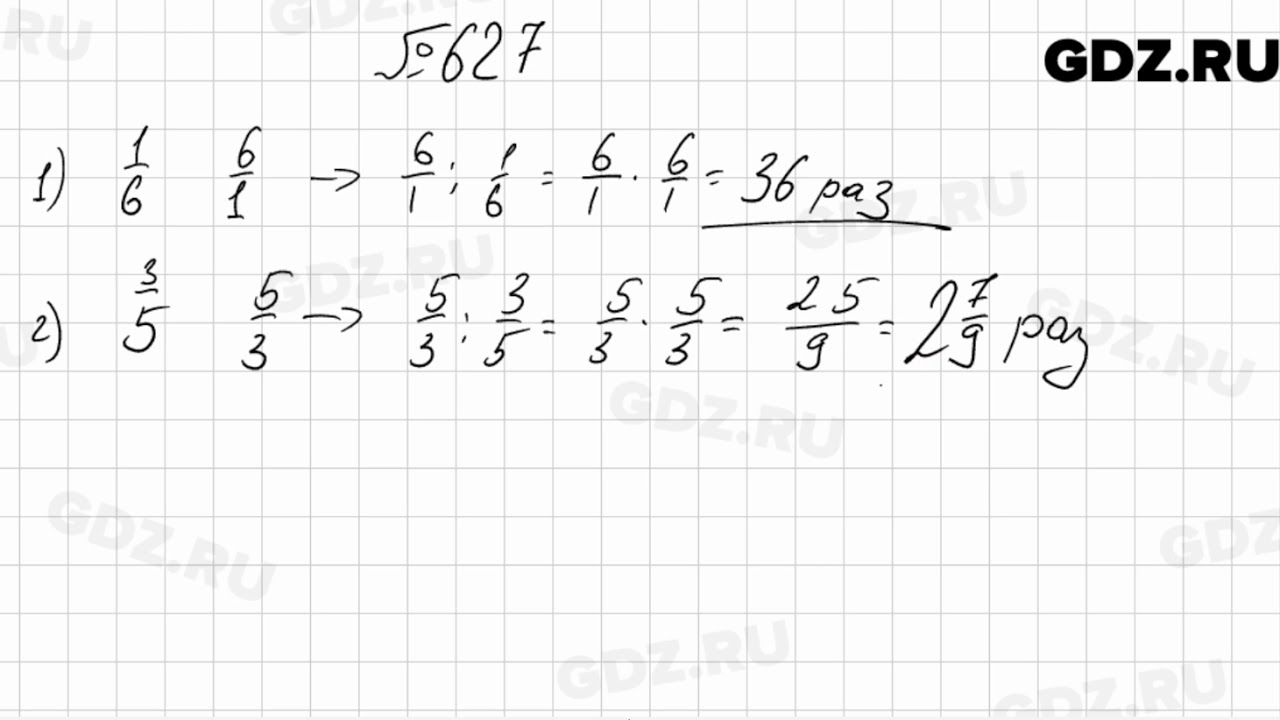 №627
GDZ.RU
1) 1/6 6/1 → 6/1 : 1/6 = 6/1 · 6/1 = 36 раз
2) 3/5 5/3 → 5/3 : 3/5 = 5/3 · 5/3 = 25/9 = 2 7/9 раз